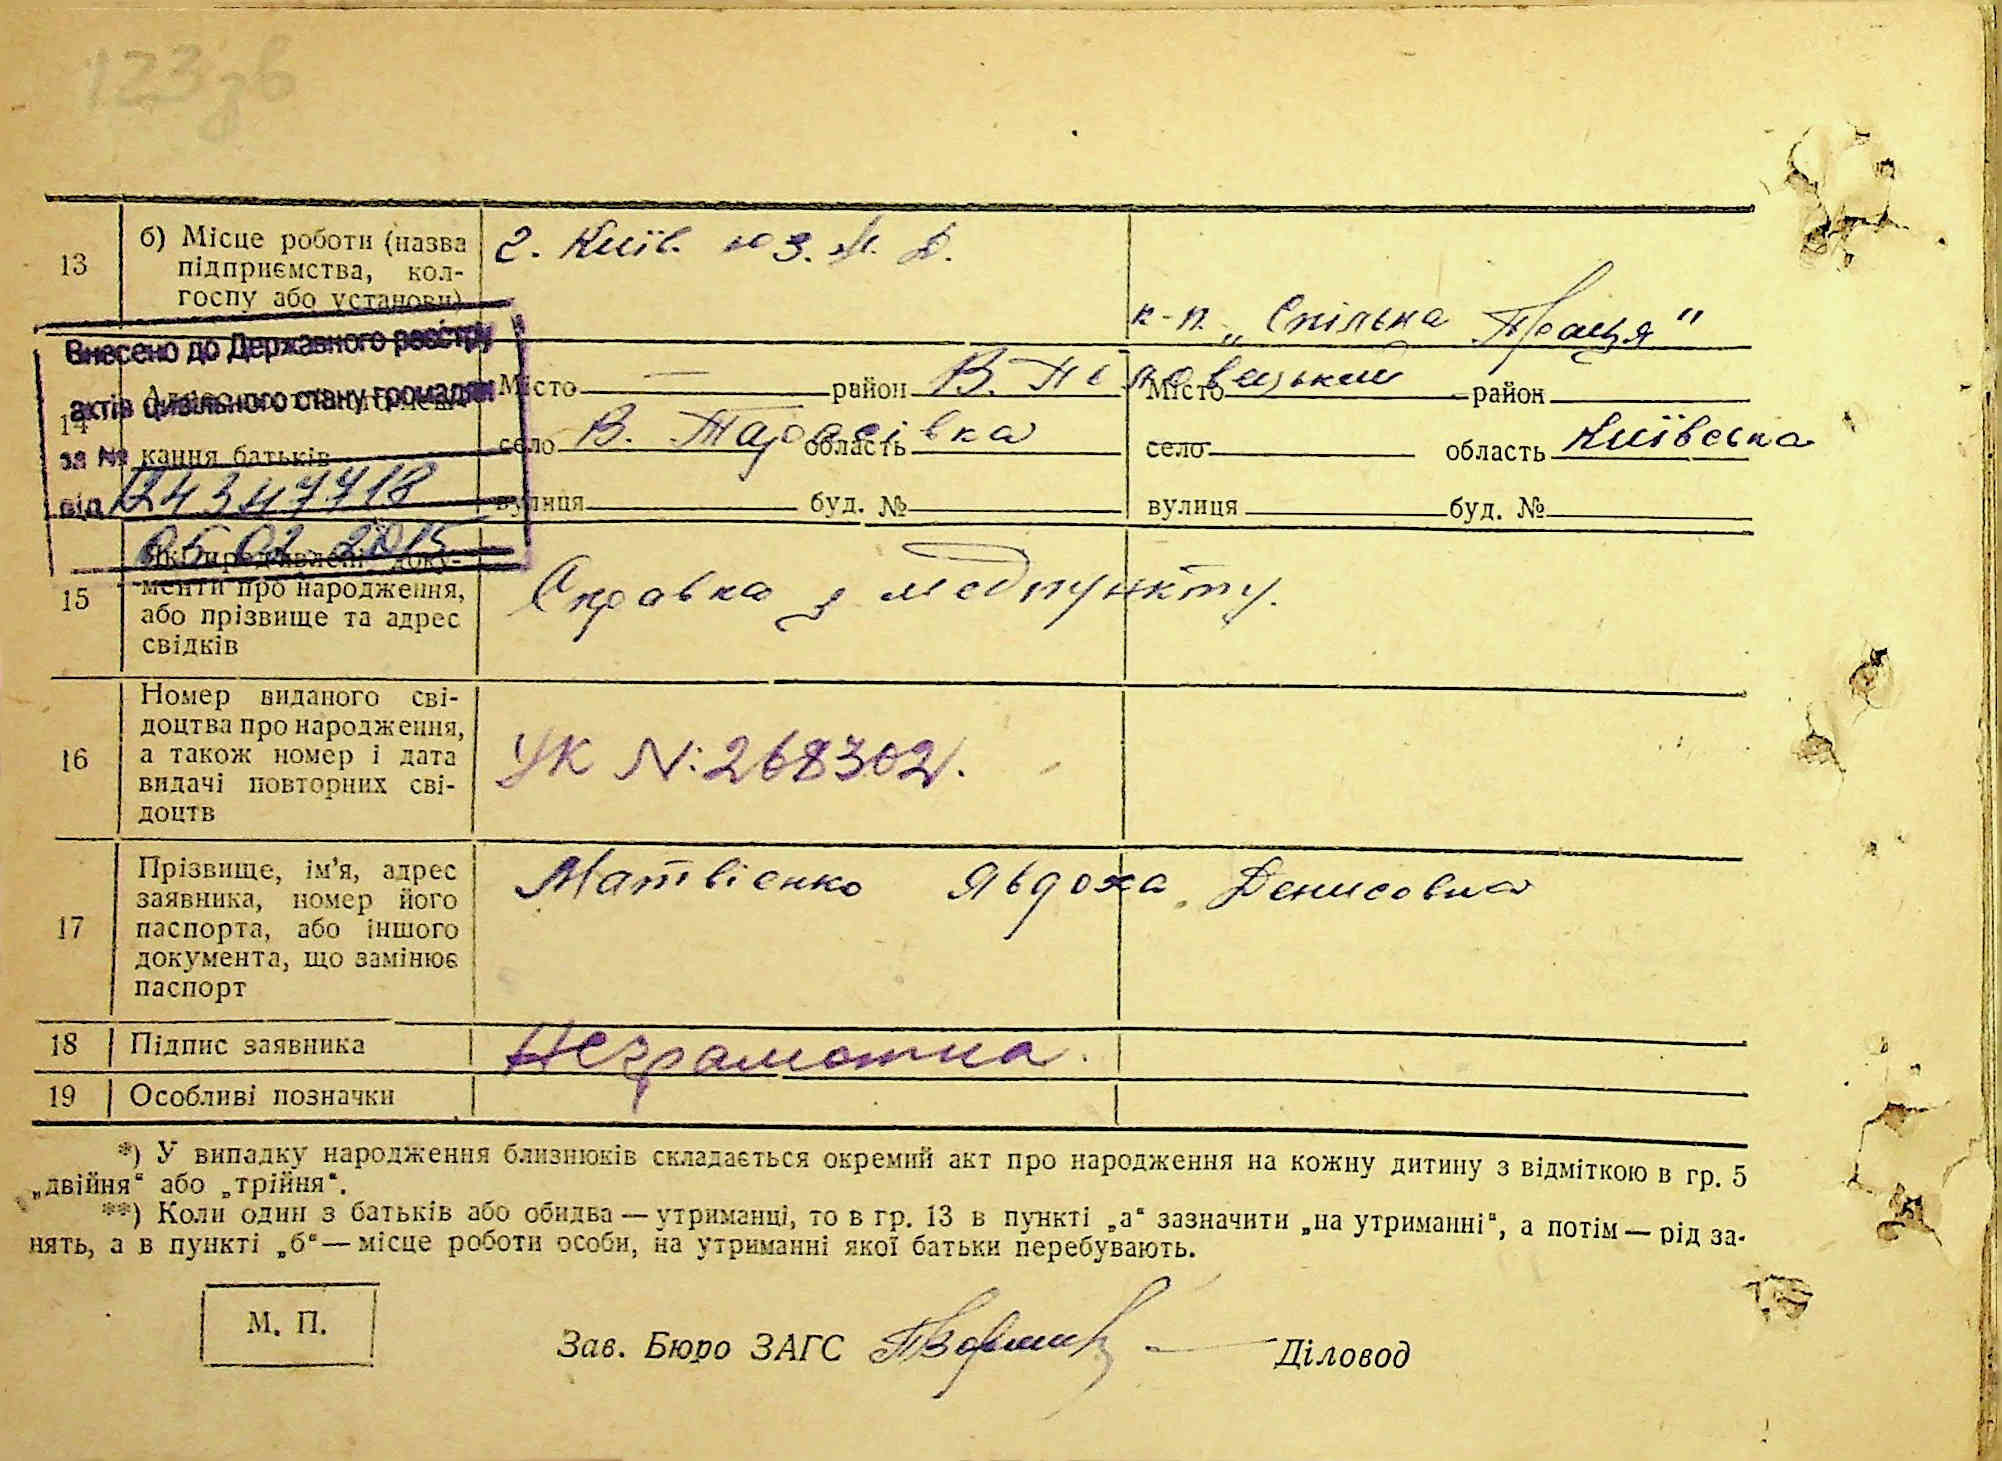 123зв
13
б) Місце роботи (назва
підприємства, кол-
госпу або установи)
г. Київ. ю з. ж. д.
к-п. „Спільна Праця"
Внесено до Державного реєстру
актів цивільного стану громадян
за №
12434771В
від
05 02 2015
14
кання батьків
Місто — район В. Половецький
село В. Тарасівка область
вулиця буд. №
Місто район
село область Київська
вулиця буд. №
15
Які пред'явлені доку-
менти про народження,
або прізвище та адрес
свідків
Справка з медпункту.
16
Номер виданого сві-
доцтва про народження,
а також номер і дата
видачі повторних сві-
доцтв
УК N: 268302.
17
Прізвище, ім'я, адрес
заявника, номер його
паспорта, або іншого
документа, що замінює
паспорт
Матвієнко Явдоха Денисовна
18
Підпис заявника
Неграмотна.
19
Особливі позначки
*) У випадку народження близнюків складається окремий акт про народження на кожну дитину з відміткою в гр. 5
„двійня“ або „трійня“.
**) Коли один з батьків або обидва — утриманці, то в гр. 13 в пункті „а“ зазначити „на утриманні“, а потім — рід за-
нять, а в пункті „б“ — місце роботи особи, на утриманні якої батьки перебувають.
М. П.
Зав. Бюро ЗАГС
Діловод